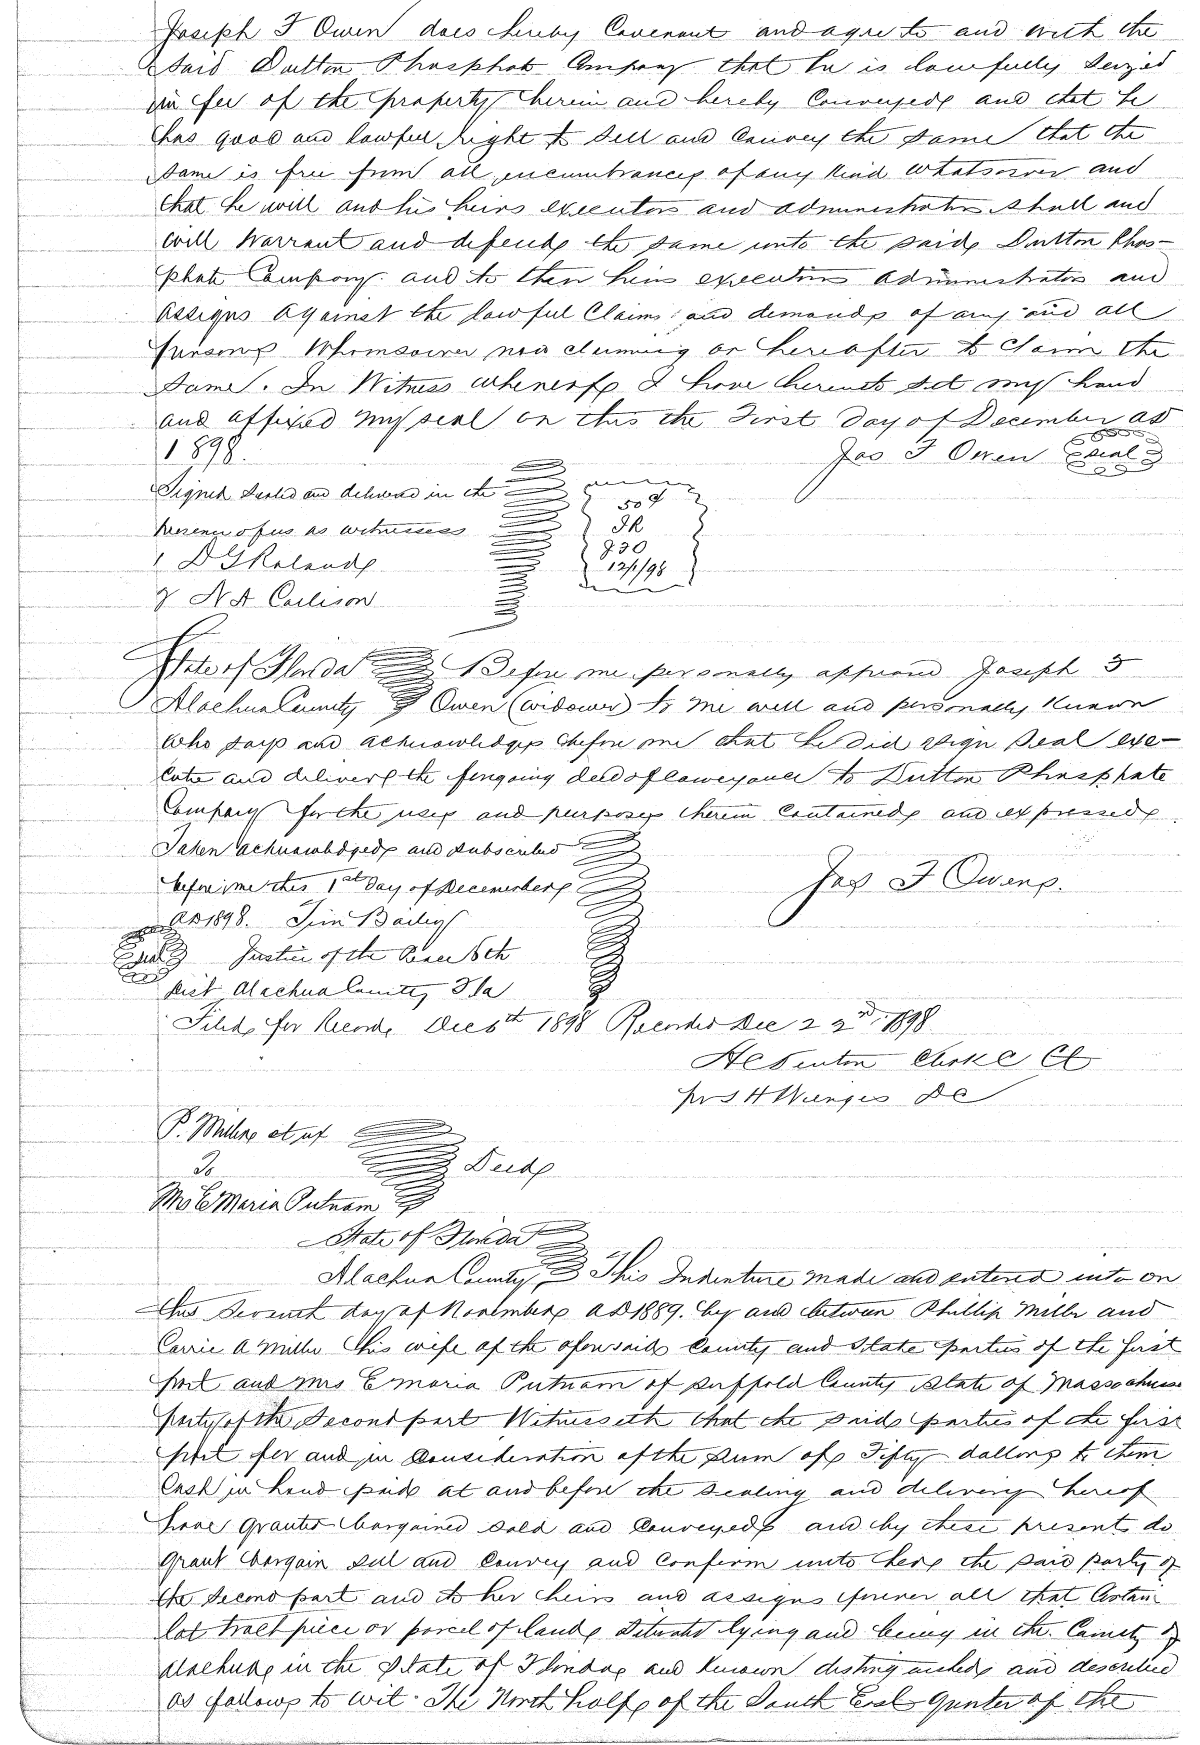 Joseph F Owen does hereby Covenant and agree to and with the
said Dutton Phosphate Company that he is lawfully seized
in fee of the property herein and hereby Conveyed and that he
has good and lawful right to sell and Convey the same that the
same is free from all incumbrances of any kind whatsoever and
that he will and his heirs executors and administrators shall and
will Warrant and defend the same unto the said Dutton Phos-
phate Company and to their heirs executors administrators and
assigns against the lawful Claims and demands of any and all
persons Whomsoever now claiming or hereafter to claim the
same. In Witness whereof I have hereunto set my hand
and affixed my seal on this the First Day of December AD
1898. Jas F Owen Seal
Signed Sealed and delivered in the
presence of us as witnesses
50¢
JR
830
12/1/98
1 D G Roland
2 N A Carlison
State of Florida Before me personally appeared Joseph F
Alachua County Owen (widower) to me well and personally Known
Who says and acknowledges before me that he did sign seal exe-
cute and deliver the foregoing deed of conveyance to Dutton Phosphate
Company for the uses and purposes therein Contained and expressed
Taken acknowledged and subscribed
before me this 1st Day of December Jas F Owens.
AD 1898. Tim Bailey
Seal Justice of the Peace 8th
Dist Alachua County Fla
Filed for Record Dec 6th 1898 Recorded Dec 22nd 1898
H C Denton Clerk C Ct
pr S H Wienges DC
P. Miller et ux
To Deed
Mrs E Maria Putnam
State of Florida
Alachua County This Indenture made and entered into on
this Seventh day of November AD 1889. by and between Phillip Miller and
Carrie A Miller his wife of the aforesaid County and State parties of the first
part and Mrs E Maria Putnam of Suffold County State of Massachuse
party of the Second part Witnesseth that the said parties of the first
part for and in Consideration of the sum of Fifty dollars to them
Cash in hand paid at and before the sealing and delivery hereof
have granted bargained sold and Conveyed and by these presents do
grant bargain sell and Convey and Confirm unto her the said party of
the Second part and to her heirs and assigns forever all that Certain
lot tract piece or parcel of land Situated lying and being in the County of
Alachua in the State of Florida and Known distinguished and described
as follows to wit. The North half of the South East Quarter of the